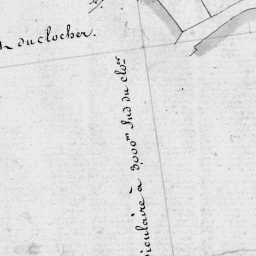 du clocher.
iculaire à 3000.m Sud du clo.er